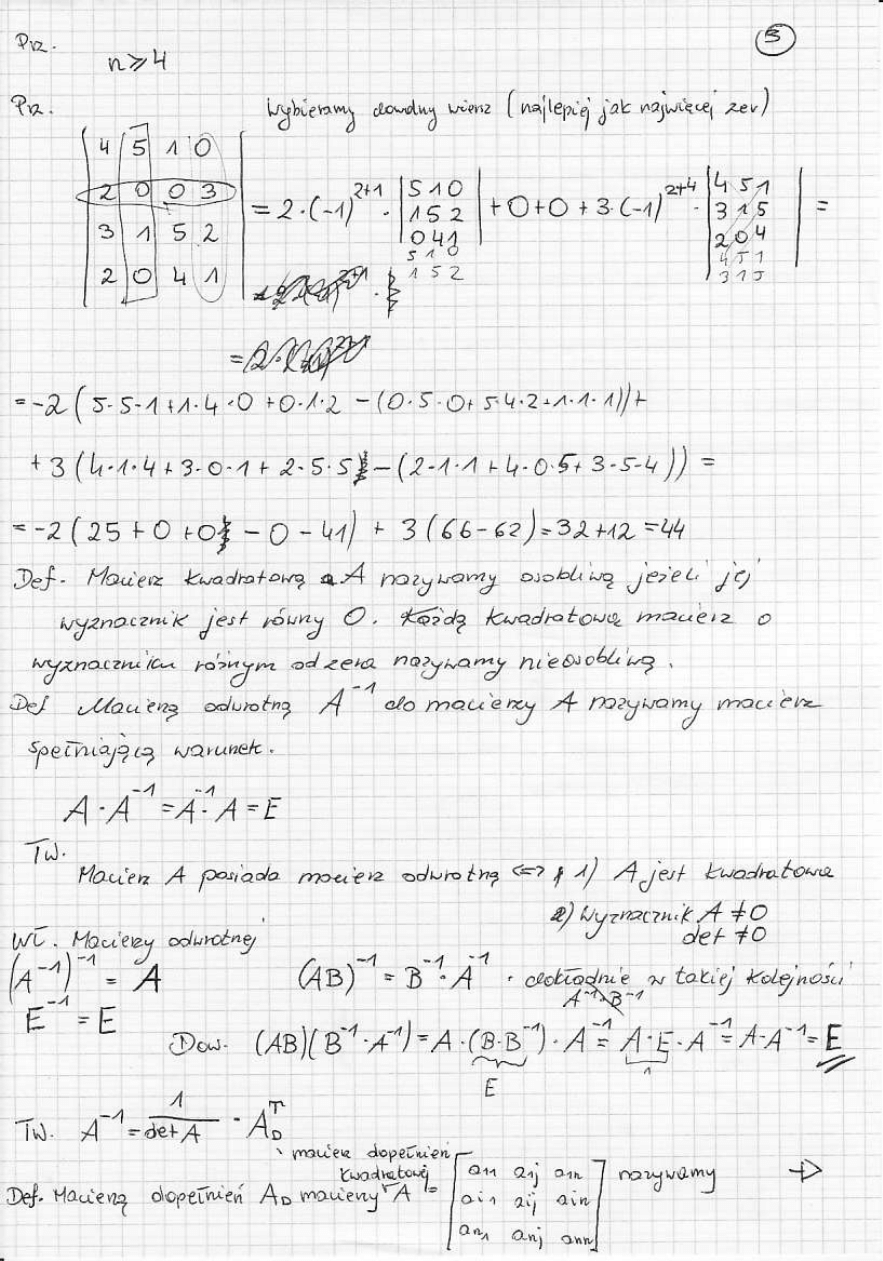 Prz.
5
n ⩾ 4
Prz.
Wybieramy dowolny wiersz (najlepiej jak najwięcej zer)
| 4 5 1 0 |
| 2 0 0 3 |
| 3 1 5 2 |
| 2 0 4 1 |
= 2·(-1)^{2+1} · | 5 1 0 | + 0 + 0 + 3·(-1)^{2+4} · | 4 5 1 | =
| 1 5 2 | | 3 1 5 |
| 0 4 1 | | 2 0 4 |
5 1 0 4 5 1
1 5 2 3 1 5
= -2 ( 5·5·1 + 1·4·0 + 0·1·2 - (0·5·0 + 5·4·2 + 1·1·1)) +
+ 3 (4·1·4 + 3·0·1 + 2·5·5 - (2·1·1 + 4·0·5 + 3·5·4)) =
= -2 (25 + 0 + 0 - 0 - 41) + 3 (66-62) = 32+12 = 44
Def. Macierz kwadratową A nazywamy osobliwą jeżeli jej
wyznacznik jest równy 0. Każdą kwadratową macierz o
wyznaczniku różnym od zera nazywamy nieosobliwą.
Def Macierzą odwrotną A^{-1} do macierzy A nazywamy macierz
spełniającą warunek.
A · A^{-1} = A^{-1} · A = E
Tw.
Macierz A posiada macierz odwrotną <=> 1) A jest kwadratowa
2) Wyznacznik A ≠ 0
det ≠ 0
Wł. Macierzy odwrotnej
(A^{-1})^{-1} = A (AB)^{-1} = B^{-1} · A^{-1} · dokładnie w takiej kolejności
A^{-1} B^{-1}
E^{-1} = E
Dow. (AB)(B^{-1} · A^{-1}) = A · (B·B^{-1}) · A^{-1} = A·E · A^{-1} = A·A^{-1} = E
E 1
Tw. A^{-1} = 1/det A · A_D^T
macierz dopełnień
kwadratowej
Def. Macierzą dopełnień A_D macierzy A = [ a11 a1j a1n ] nazywamy →
[ ai1 aij ain ]
[ an1 anj ann ]